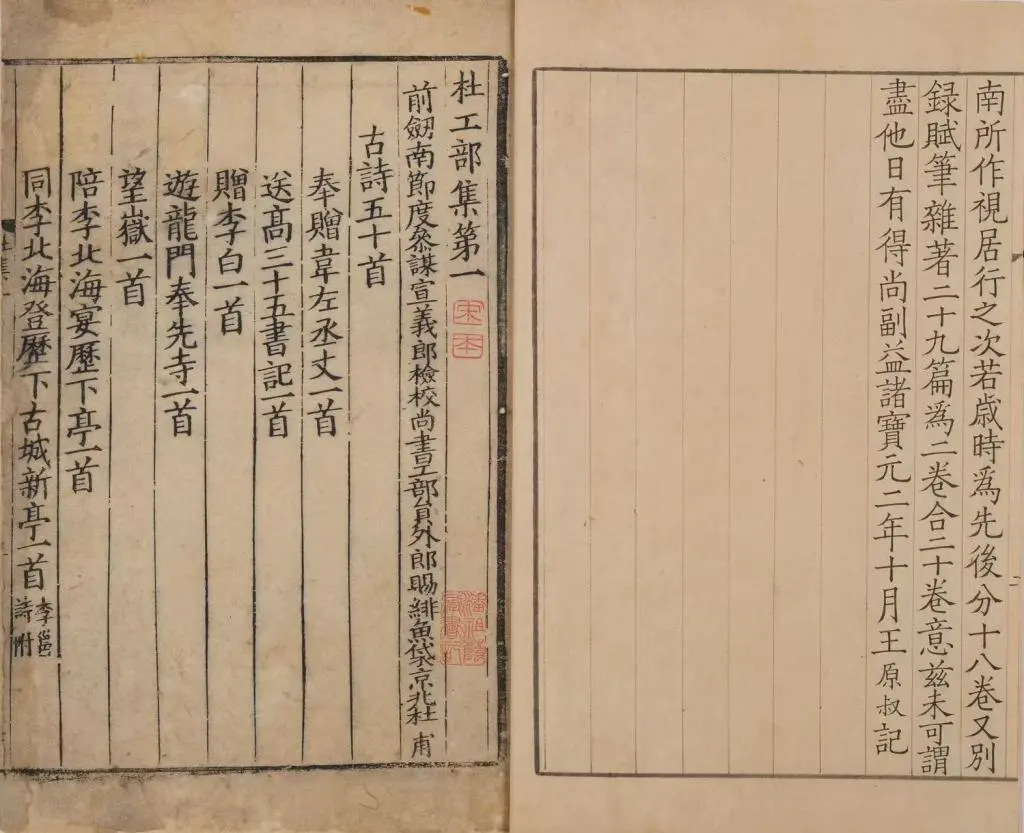 南所作視居行之次若歲時爲先後分十八卷又別
録賦筆雜著二十九篇爲二卷合二十卷意兹未可謂
盡他日有得尚副益諸寶元二年十月王原叔記
杜工部集第一
宋本
前劒南節度叅謀宣義郎檢校尚書工部員外郎賜緋魚袋京兆杜甫
潘祖蔭
藏書記
古詩五十首
奉贈韋左丞丈一首
送髙三十五書記一首
贈李白一首
遊龍門奉先寺一首
望嶽一首
陪李北海宴歷下亭一首
同李北海登歷下古城新亭一首
李邕
詩附